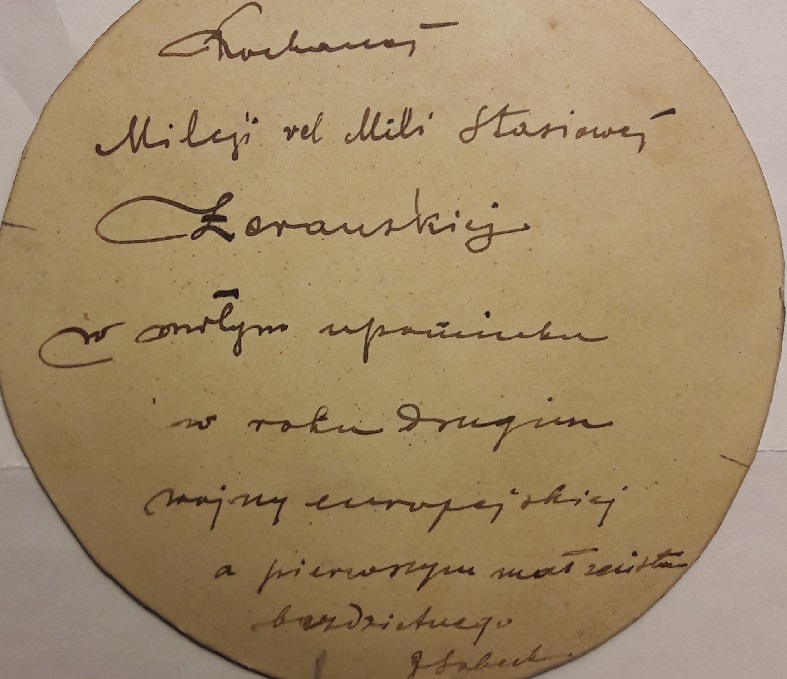 Kochanej
Milcji vel Mili Stasiowej
Żerauskiej
w miłym upominku
w roku drugim
wojny europejskiej
a pierwszym małżeństwa
bezdzietnego